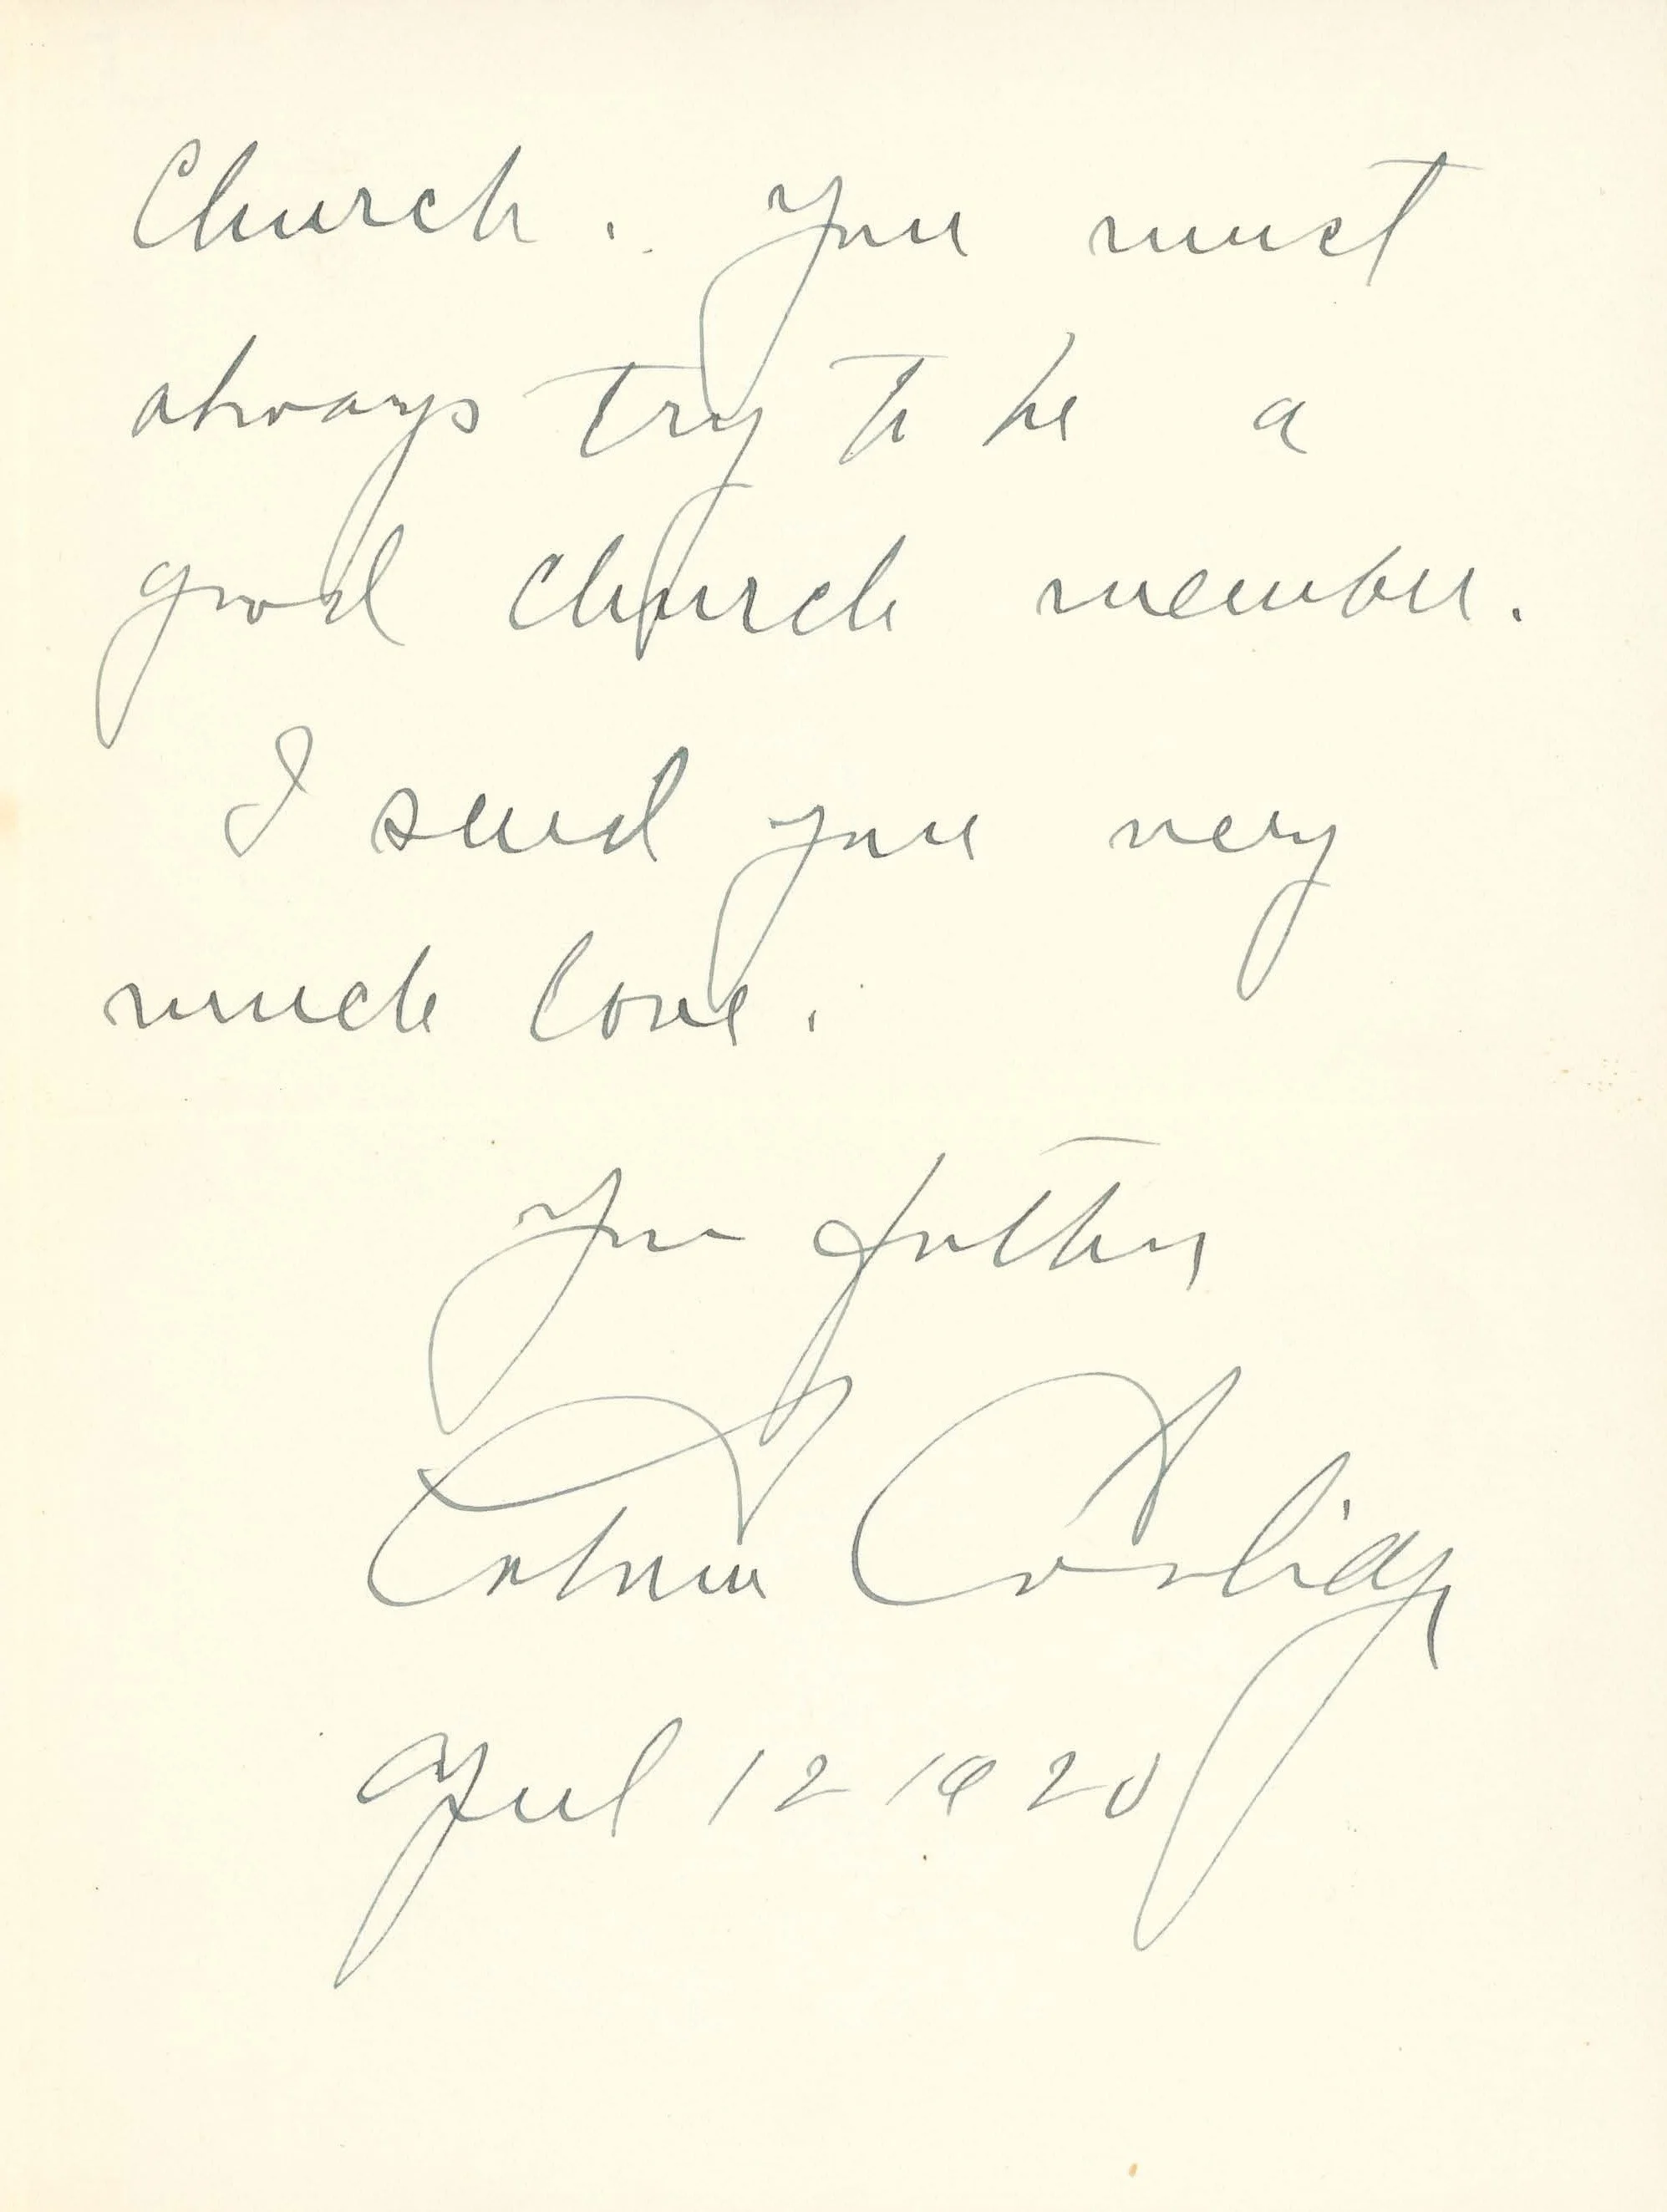 Church. You must
always try to be a
good church member.
I send you very
much love.
Your father
Calvin Coolidge
April 12 1920